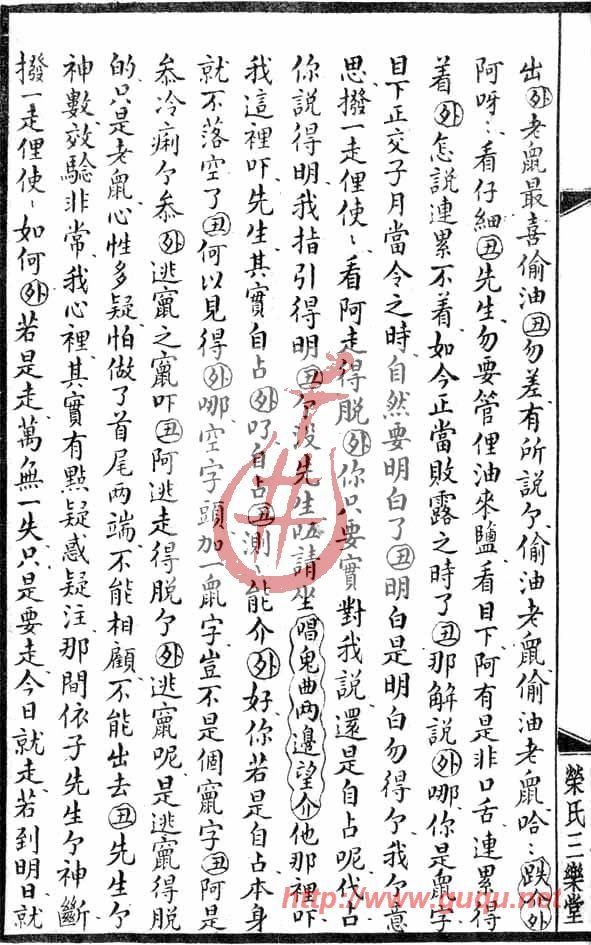 出㊀外老鼠最喜偷油丑勿差有所説个偷油老鼠偷油老鼠哈〻跌介外
阿呀〻看仔細丑先生勿要管俚油來鹽看目下阿有是非口舌連累得
着外怎説連累不着如今正當敗露之時了丑那解説外哪你是鼠字
目下正交子月當令之時自然要明白了丑明白是明白勿得个我个意
思撥一走俚使〻看阿走得脱外你只要實對我説還是自占呢代占
你説得明我指引得明丑个没先生請坐唱鬼曲兩邊望介他那裡吓
我這裡吓先生其實自占外吖自占丑測〻能介外好你若是自占本身
就不落空了丑何以見得外哪空字頭加一鼠字豈不是個竄字丑阿是
叅冷痢个叅外逃竄之竄吓丑阿逃走得脱个外逃竄呢是逃竄得脱
的只是老鼠心性多疑怕做了首尾兩端不能相顧不能出去丑先生个
神數效驗非常我心裡其實有點疑惑疑注那間依子先生个神斷
撥一走俚使〻如何外若是走萬無一失只是要走今日就走若到明日就
榮氏三樂堂
http://www.guqu.net